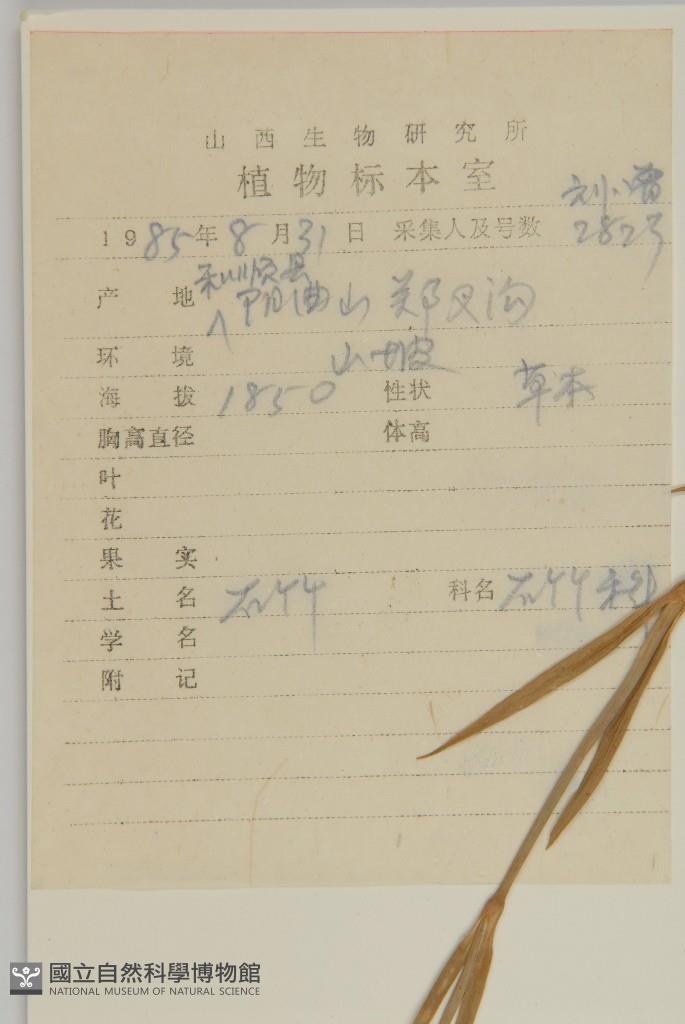 山西生物研究所
植物标本室
1985年8月31日 采集人及号数 2823
产地 山 郑 沟
环境 山坡
海拔 1850 性状 草本
胸高直径 体高
叶
花
果实
土名 石竹 科名 石竹科
学名
附记
國立自然科學博物館
NATIONAL MUSEUM OF NATURAL SCIENCE